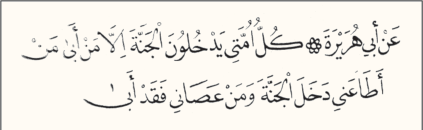 عَنْ أَبِي هُرَيْرَةَ ۞ كُلُّ أُمَّتِي يَدْخُلُونَ الْجَنَّةَ إِلَّا مَنْ أَبَىٰ مَنْ
أَطَاعَنِي دَخَلَ الْجَنَّةَ وَمَنْ عَصَانِي فَقَدْ أَبَىٰ